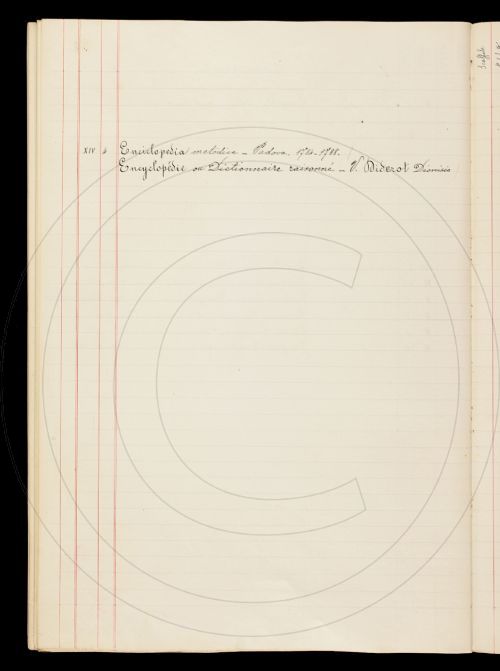 XIV Enciclopedia metodica - Padova. 1784-1788.
Encyclopédie ou Dictionnaire raisonné - V. Diderot Dionisio
Scaffale